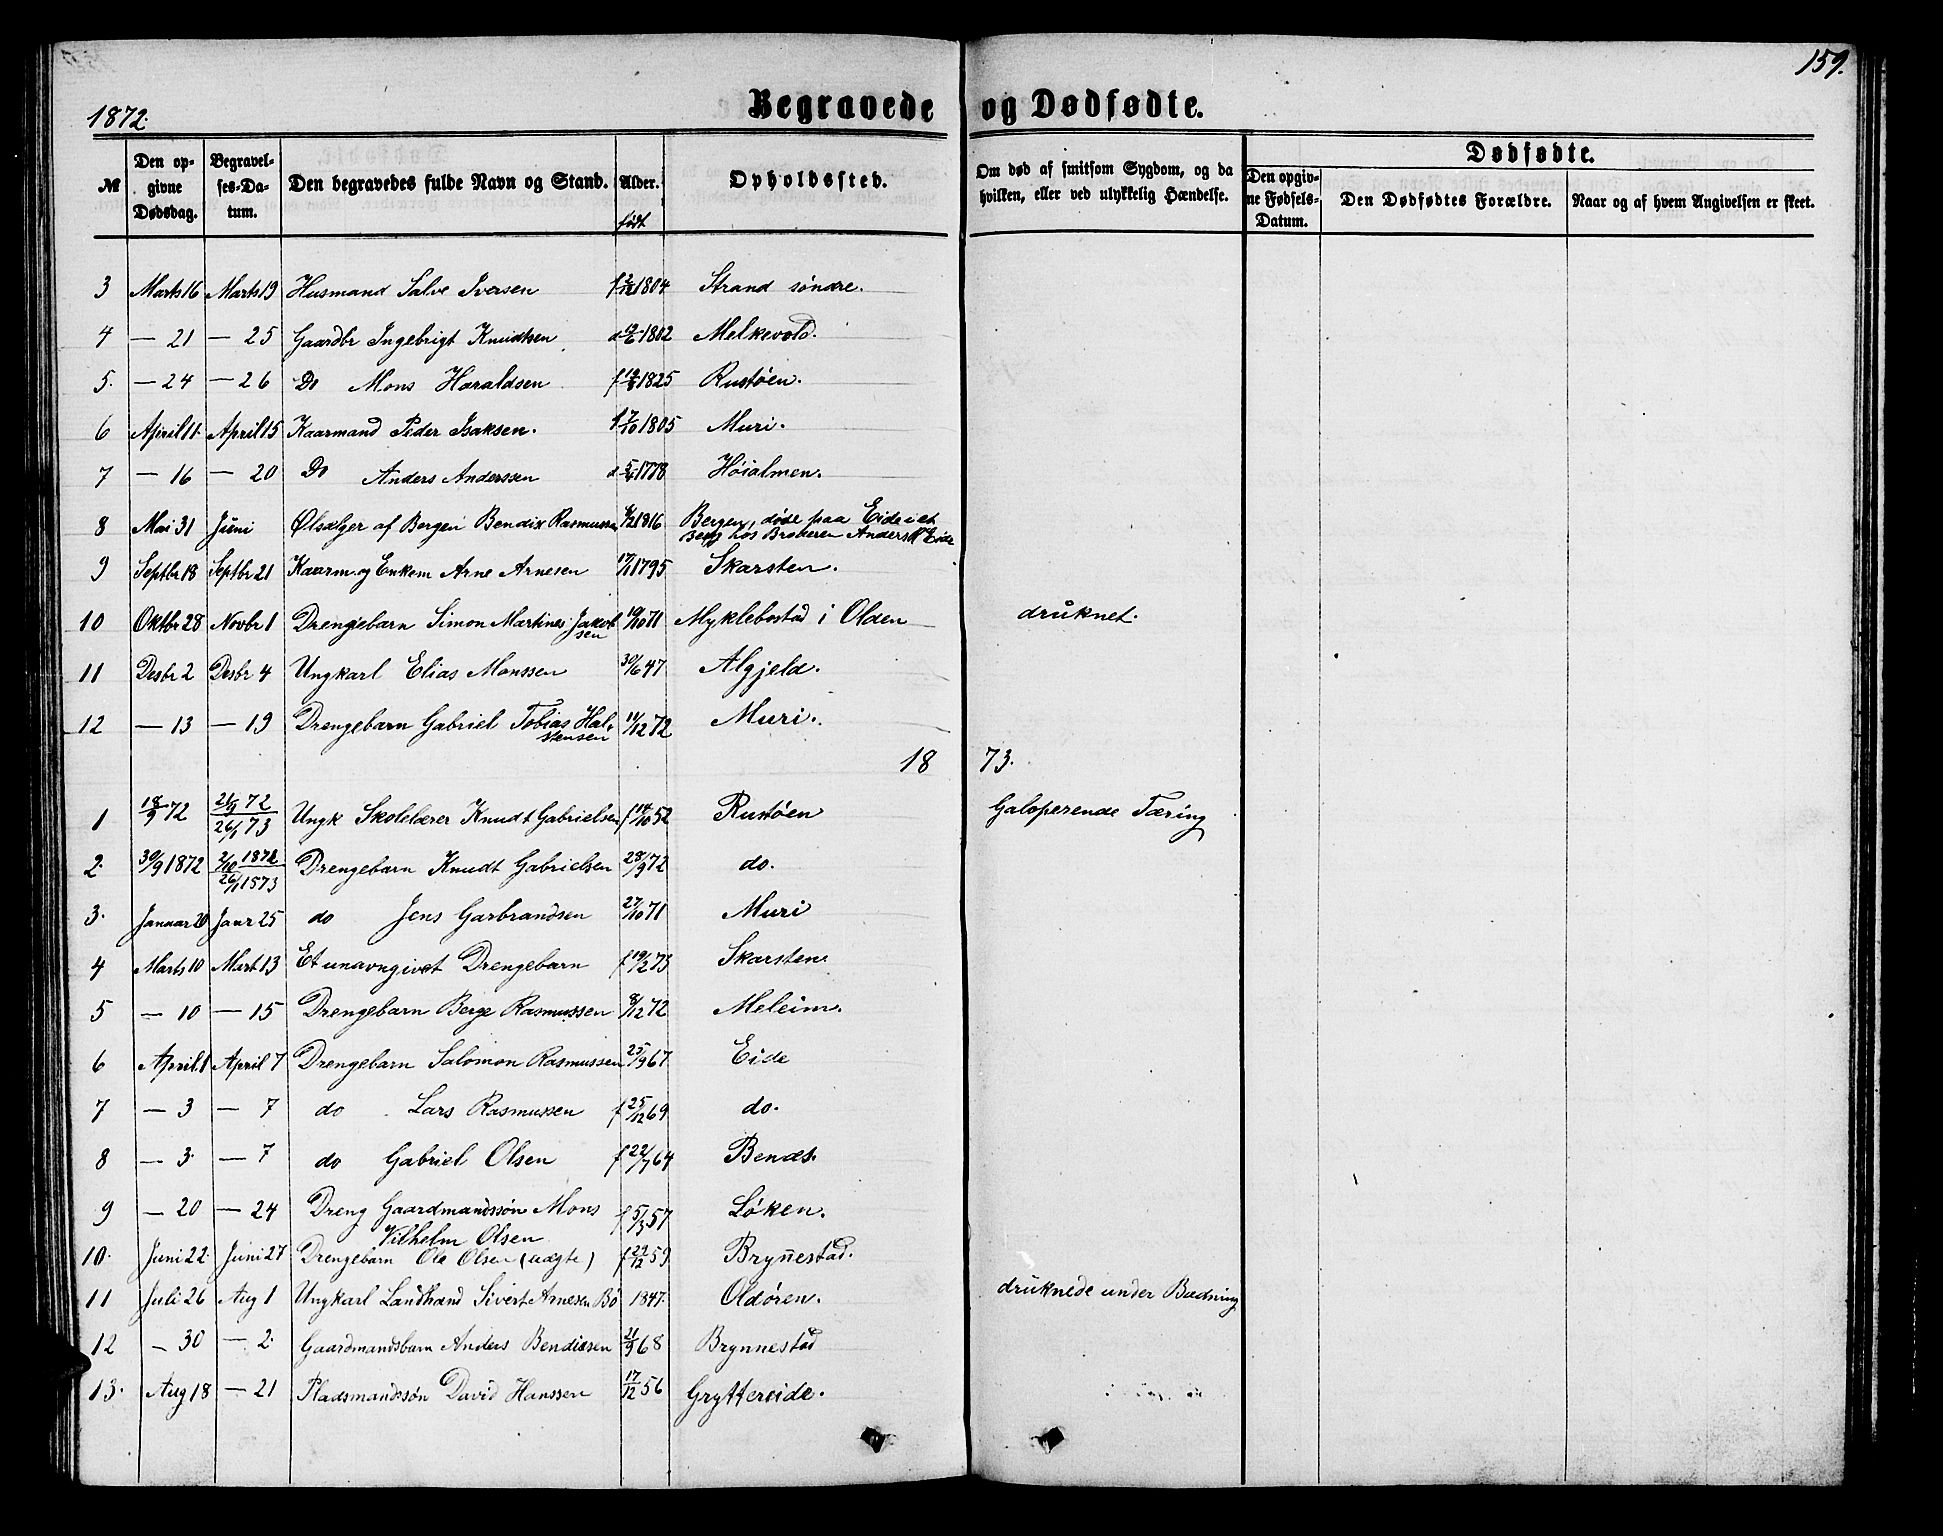 159.
1872.
Begravede og Dødfødte.
№ | Den opgivne Dødsdag. | Begravelses-Datum. | Den begravedes fulde Navn og Stand. | Alder. født | Opholdssted. | Om død af smitsom Sygdom, og da hvilken, eller ved ulykkelig Hændelse. | Dødfødte. | Den opgivne Fødsels-Datum. | Den Dødfødtes Forældre. | Naar og af hvem Angivelsen er skeet.
3 Marts 16 Marts 19 Husmand Salve Iversen 1804 Strand søndre.
4 — 21 — 25 Gaardbr Ingebrigt Knudtsen 1802 Melkevold.
5. — 24 — 26 Do Mons Haraldsen 1825 Rustøen.
6 April 11. April 15 Kaarmand Peder Isaksen. 7/10 1805 Muri.
7 — 16 — 20 Do Anders Anderssen 1778 Høialmen.
8 Mai 31 Juni Ølsælger af Bergen Bendix Rasmussen 1816 Bergen, døde paa Eide i et
Besøg hos Broderen Anders Eide
9 Septbr 18 Septbr 21 Kaarm. og Enkem Arne Arnesen 1795 Skarsten.
10 Oktbr 28 Novbr 1 Drengebarn Simon Martines Jakob- 19/10 71 Myklebostad i Olden druknet.
sen
11 Desbr 2 Desbr 4 Ungkarl Elias Monssen 30/6 47 Algjeld.
12 — 13 — 19 Drengebarn Gabriel Tobias Hal- 11/12 72 Muri.
stensen
1873.
1 18/9 72 21/9 72 26/1 73 Ungk Skolelærer Knudt Gabrielsen f 14/10 52 Rustøen Galoperende Tæring
2. 30/9 1872 2/10 1872 26/1 1573 Drengebarn Knudt Gabrielsen 28/9 72 do.
3. Januar 20 Janr 25 do Jens Garbrandsen 27/10 71 Muri
4 Marts 10 Mart 13 Et unavngivet Drengebarn f 19/2 73 Skarsten
5 — 10 — 15 Drengebarn Berge Rasmussen 8/12 72 Meleim.
6 April 1 April 7 Drengebarn Salomon Rasmussen 25/9 67 Eide
7 — 3 — 7 do Lars Rasmussen f 25/12 69 do.
8 — 3. — 7 do Gabriel Olsen f 22/7 64 Benæs.
9 — 20 — 24 Dreng Gaardmandssøn Mons f 5/3 57 Løken.
Vilhelm Olsen
10. Juni 22. Juni 27 Drengebarn Ole Olsen (uægte) f 22/12 59 Bryñestad.
11 Juli 26 Aug 1 Ungkarl Landhand Sivert Arnesen Bø 1847. Oldøren. druknede under Badning
12 — 30 — 2. Gaardmandsbarn Anders Bendixsen 21/9 68 Brynnestad
13. Aug 18 — 21 Pladsmandssøn David Hanssen 17/12 56 Gryttereide.